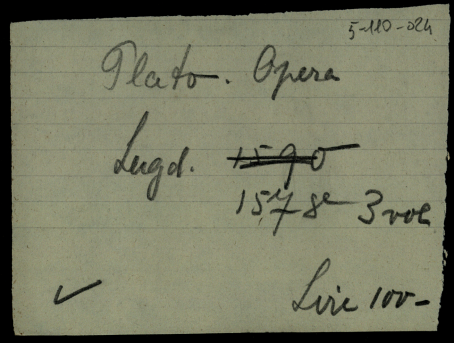 5-110-024
Plato. Opera
Lugd. 1590
1578 3 vol
Lire 100-